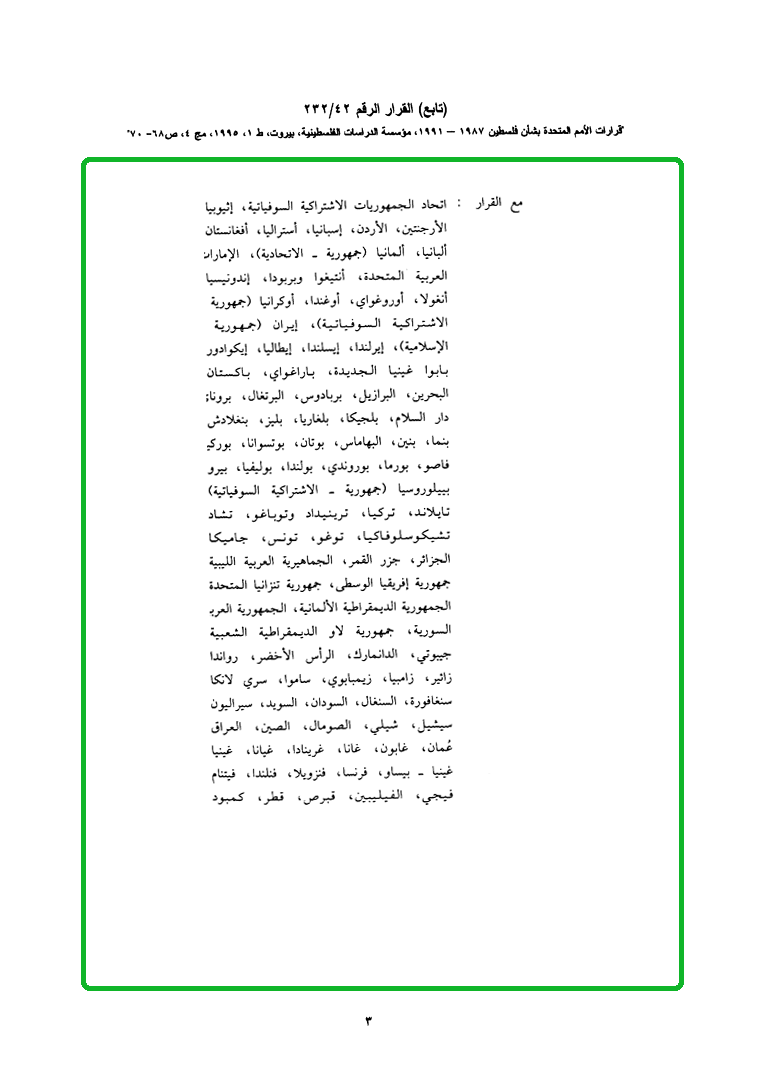 (تابع) القرار الرقم ٢٣٢/٤٢
"قرارات الأمم المتحدة بشأن فلسطين ١٩٨٧ – ١٩٩١، مؤسسة الدراسات الفلسطينية، بيروت، ط ١، ١٩٩٥، مج ٤، ص٦٨- ٧٠"
مع القرار : اتحاد الجمهوريات الاشتراكية السوفياتية، إثيوبيا
الأرجنتين، الأردن، إسبانيا، أستراليا، أفغانستان
ألبانيا، ألمانيا (جمهورية ـ الاتحادية)، الإمارات
العربية المتحدة، أنتيغوا وبربودا، إندونيسيا
أنغولا، أوروغواي، أوغندا، أوكرانيا (جمهورية
الاشتراكية السوفياتية)، إيران (جمهورية
الإسلامية)، إيرلندا، إيسلندا، إيطاليا، إيكوادور
بابوا غينيا الجديدة، باراغواي، باكستان
البحرين، البرازيل، بربادوس، البرتغال، برونا
دار السلام، بلجيكا، بلغاريا، بليز، بنغلادش
بنما، بنين، البهاماس، بوتان، بوتسوانا، بوركي
فاصو، بورما، بوروندي، بولندا، بوليفيا، بيرو
بييلوروسيا (جمهورية ـ الاشتراكية السوفياتية)
تايلاند، تركيا، ترينيداد وتوباغو، تشاد
تشيكوسلوفاكيا، توغو، تونس، جاميكا
الجزائر، جزر القمر، الجماهيرية العربية الليبية
جمهورية إفريقيا الوسطى، جمهورية تنزانيا المتحدة
الجمهورية الديمقراطية الألمانية، الجمهورية العرب
السورية، جمهورية لاو الديمقراطية الشعبية
جيبوتي، الدانمارك، الرأس الأخضر، رواندا
زائير، زامبيا، زيمبابوي، ساموا، سري لانكا
سنغافورة، السنغال، السودان، السويد، سيراليون
سيشيل، شيلي، الصومال، الصين، العراق
عُمان، غابون، غانا، غرينادا، غيانا، غينيا
غينيا ـ بيساو، فرنسا، فنزويلا، فنلندا، فيتنام
فيجي، الفيليبين، قبرص، قطر، كمبود
٣